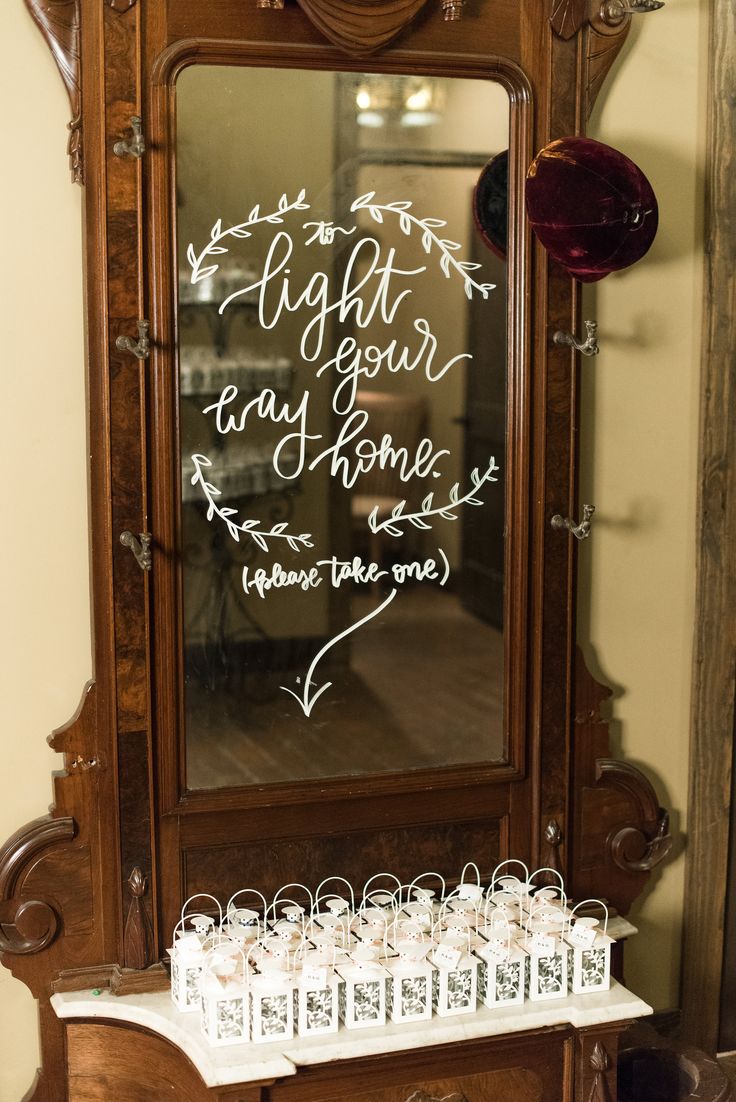 to
light
your
way home.
(please take one)